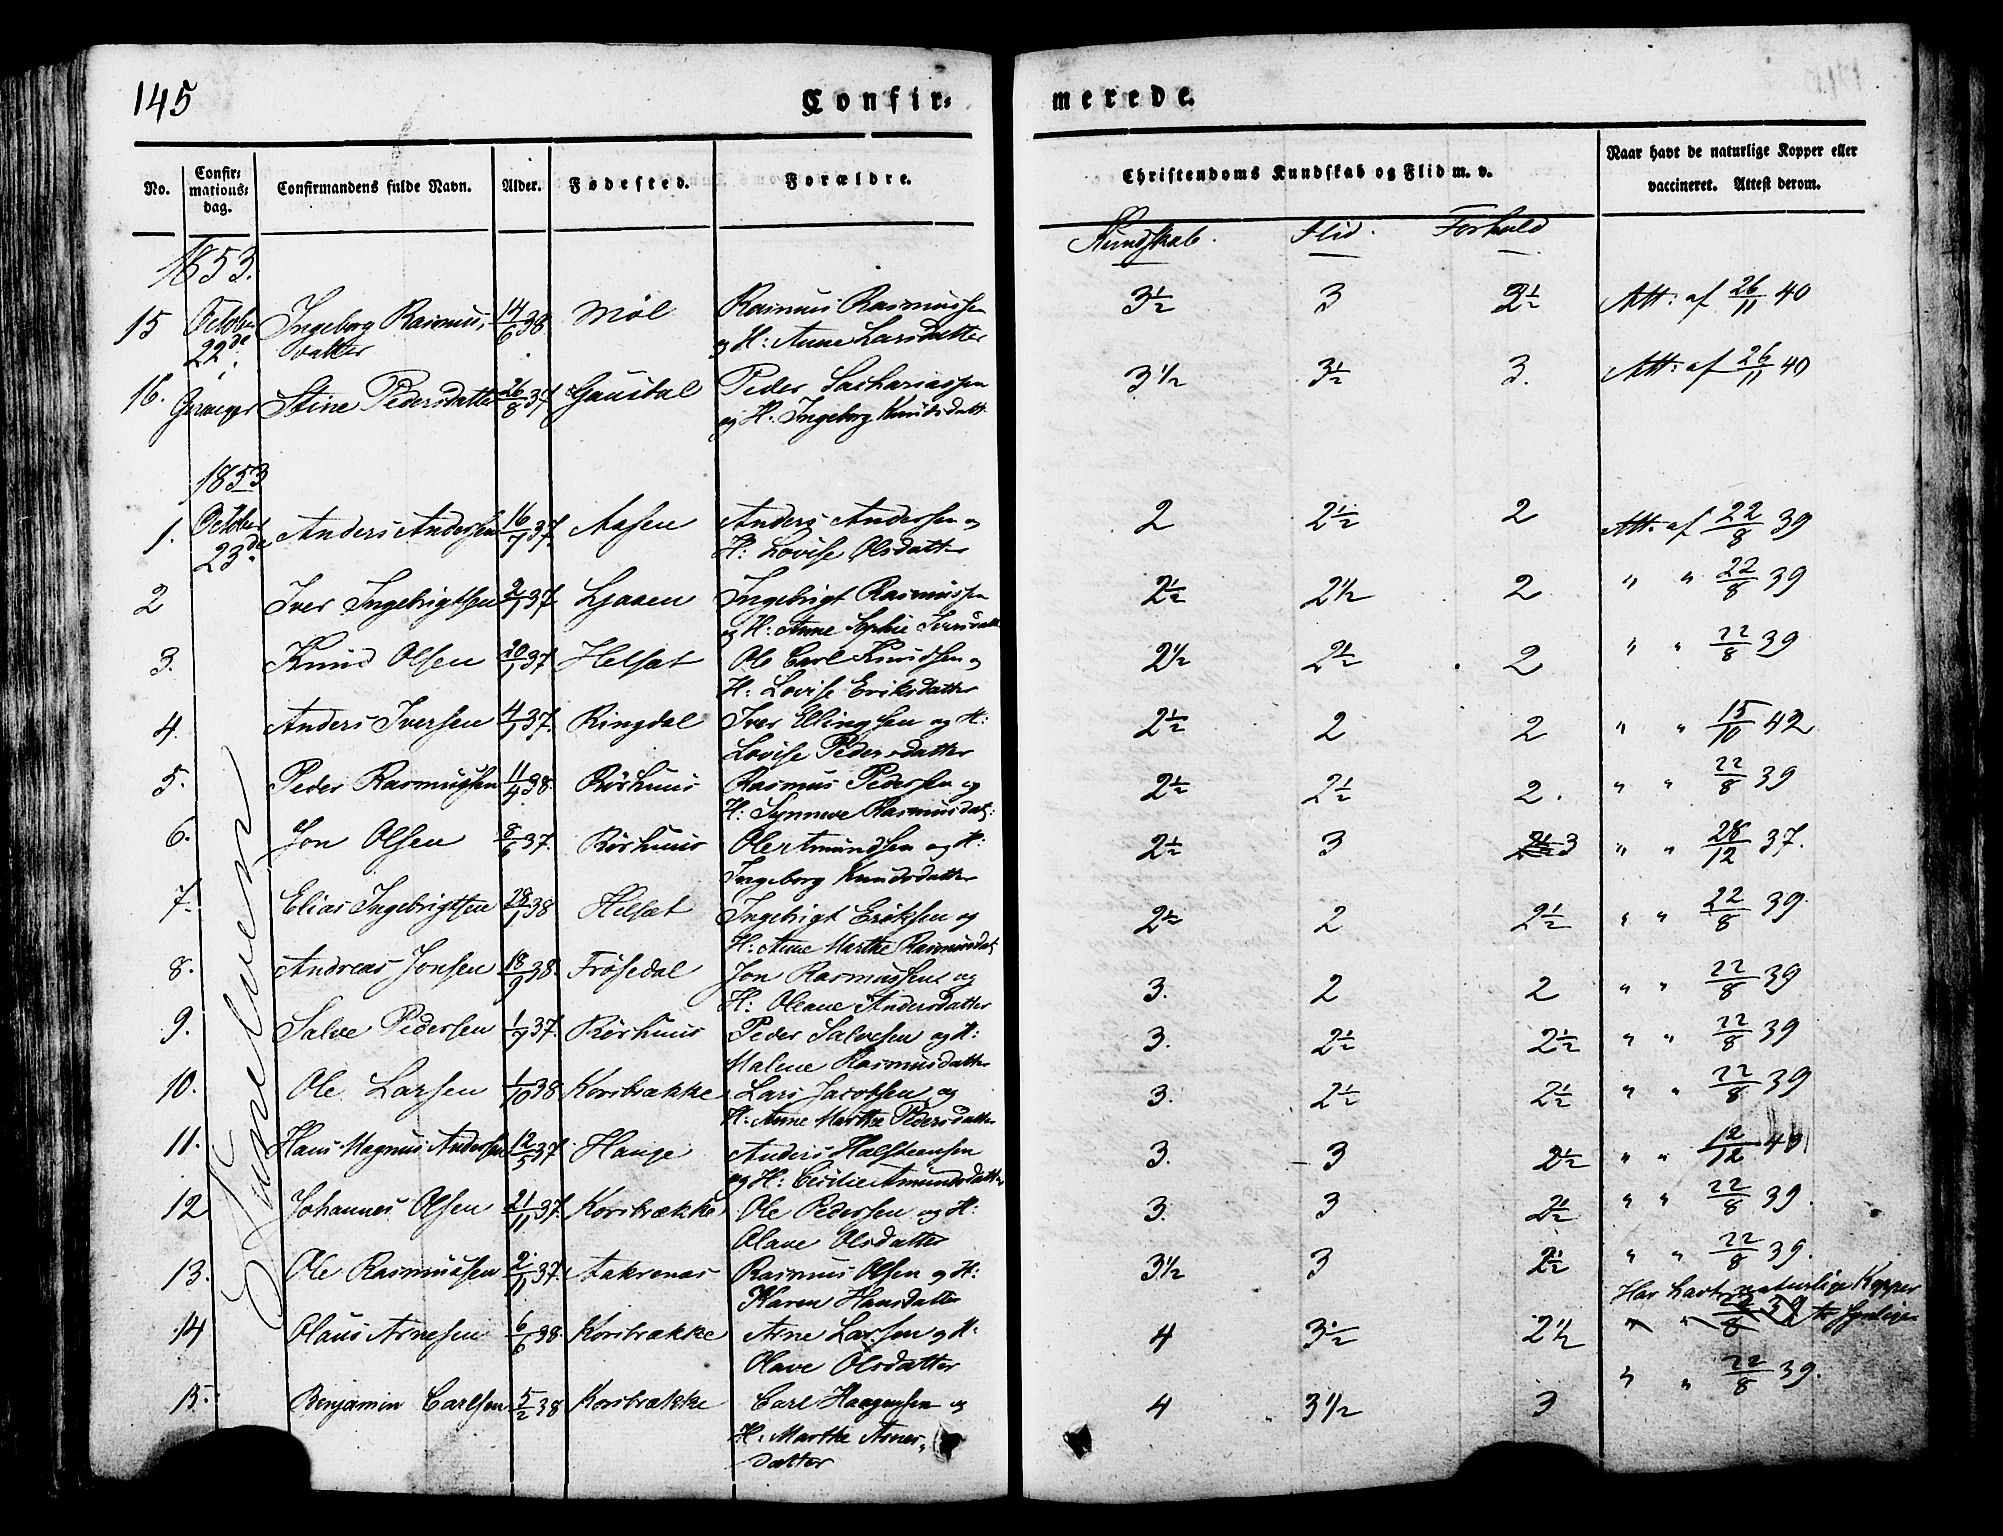 145
Confir=
merede.
No.
Confir=
mations=
dag.
Confirmandens fulde Navn.
Alder.
Fødested.
Forældre.
Christendoms Kundskab og Flid m. v.
Naar havt de naturlige Kopper eller
vaccineret. Attest derom.
Kundskab. Flid. Forhold
1853.
15 October 22de Ingeborg Rasmus,
datter 14/6 38 Möl Rasmus Rasmussen
og H: Anne Larsdatter 3½ 3 2½ Att: af 26/11 40
16. Geranger Stine Pedersdatter 26/8 37 Gausdal Peder Sachariassen
og H: Ingeborg Knudsdatt 3½ 3½ 3. Att: af 26/11 40
1853
1. October 23de Anders Andersen 16/7 37. Aasen Anders Andersen og
H: Lovise Olsdatter 2 2½ 2 Att. af 22/8 39
2 Iver Ingebrigtsen 2/1 37 Ljaaen Ingebrigt Rasmussen
og H: Anne Sophie Iversdatt 2½ 2½ 2 " " 22/8 39
3. Knud Olsen 20/1 37 Helsæt Ole Carl Knudsen og
H: Lovise Eriksdatter 2½ 2½ 2 " " 22/8 39
4. Anders Iversen 4/1 37. Ringdal Iver Ellingsen og H:
Lovise Pedersdatter 2½ 2 2 " " 15/10 42
5. Peder Rasmussen 11/4 38. Rørhuus Rasmus Pedersen og
H: Synneve Rasmusdat: 2½ 2½ 2. " " 22/8 39
6. Jon Olsen 8/6 37. Rørhuus Ole Amundsen og H:
Ingeborg Knudsdatter 2½ 3 2½ 3 " " 28/12 37.
7. Elias Ingebrigtsen 29/1 38 Helsæt Ingebrigt Eriksen og
H: Anne Marthe Rasmusdat 2½ 2 2½ " " 22/8 39.
8. Andreas Jonsen 18/9 38. Frøsedal Jon Rasmussen og
H: Oleane Andersdatter 3. 2 2 " " 22/8 39
9. Salve Pedersen 1/9 37. Rørhuus Peder Salvesen og H:
Malene Rasmusdatter 3. 2½ 2½ " " 22/8 39
10. Ole Larsen 1/10 38 Korsbrække Lars Jacobsen og
H: Anne Marthe Pedersdatter 3. 2½ 2½ " " 22/8 39
11. Hans Magnus Andersen 12/5 37 Hauge Anders Halsteensen
og H: Cicilie Amundsdatter 3. 3 2½ " " 12/12 43
12 Johannes Olsen 21/11 37. Korsbrække Ole Pedersen og H:
Olave Olsdatter 3. 3 2½ " " 22/8 39.
13. Ole Rasmussen 2/11 37. Aakrenæs Rasmus Olsen og H:
Karen Hansdatter 3½ 3 2½ " " 22/8 39.
14 Olaus Arnesen 6/6 38. Korsbrække Arne Larsen og H:
Olave Olsdatter 4 3½ 2½ Har havt naturlige Kopper
" " 22/8 39
15. Benjamin Carlsen 5/2 38 Korsbrække Carl Haagensen og
H: Marthe Arnes,
datter 4 3½ 3 " " 22/8 39.
Sunelven